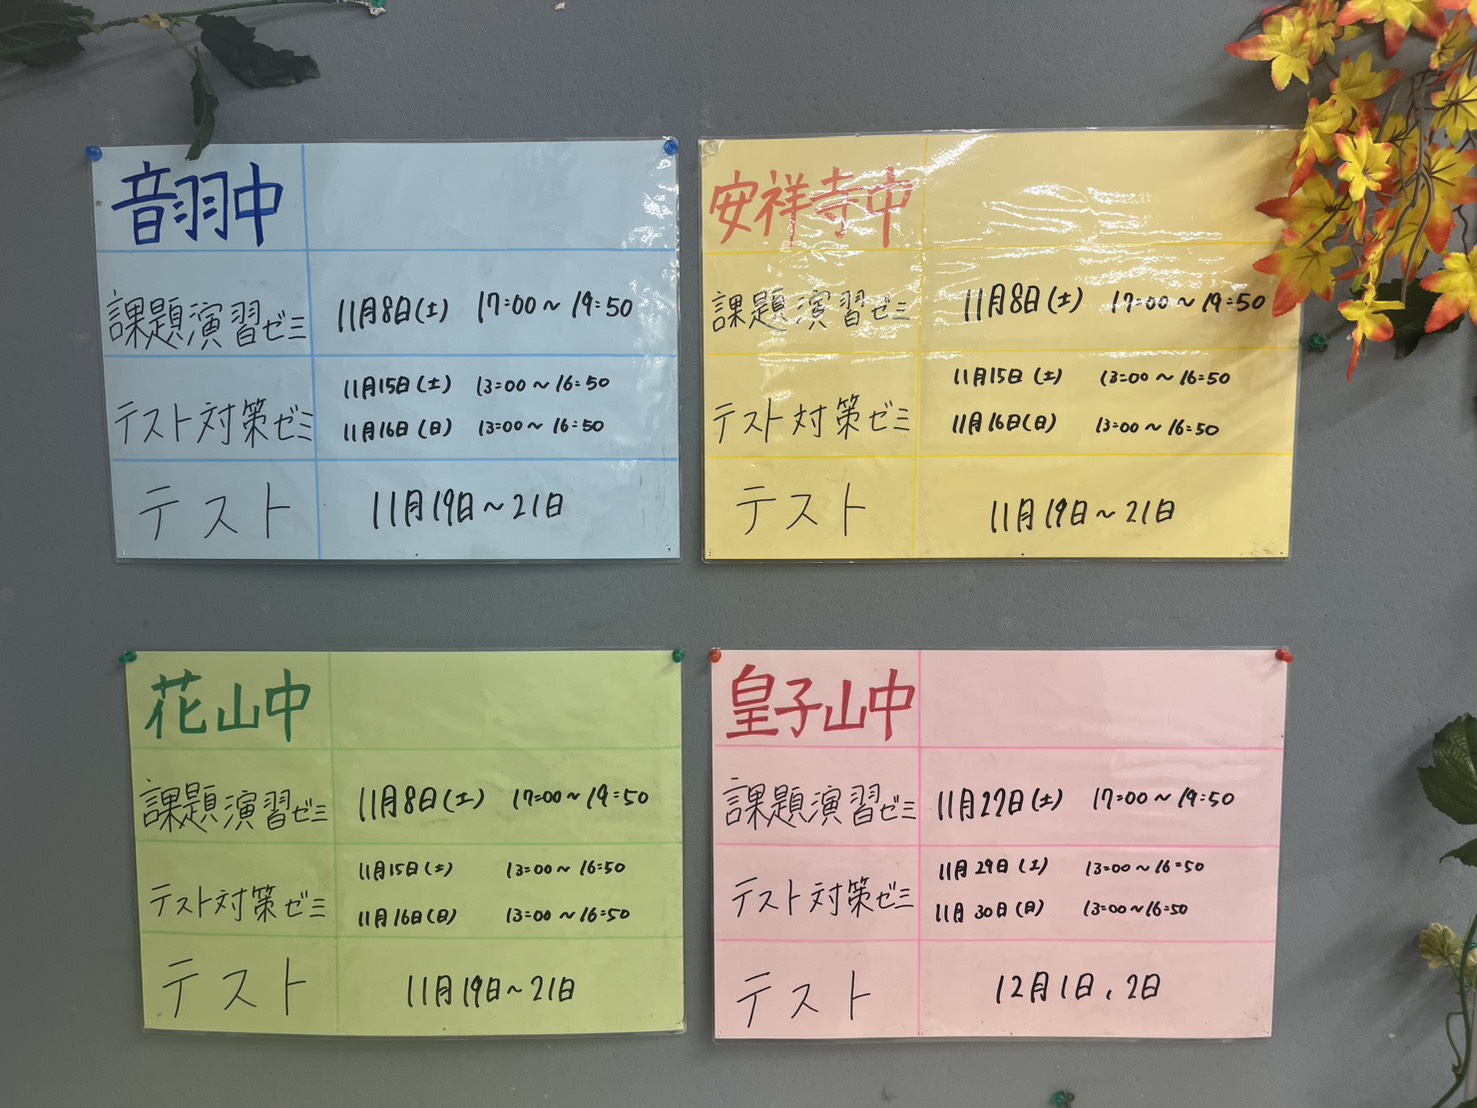 音羽中
課題演習ゼミ 11月8日(土) 17:00～19:50
テスト対策ゼミ 11月15日(土) 13:00～16:50
11月16日(日) 13:00～16:50
テスト 11月19日～21日
安祥寺中
課題演習ゼミ 11月8日(土) 17:00～19:50
テスト対策ゼミ 11月15日(土) 13:00～16:50
11月16日(日) 13:00～16:50
テスト 11月19日～21日
花山中
課題演習ゼミ 11月8日(土) 17:00～19:50
テスト対策ゼミ 11月15日(土) 13:00～16:50
11月16日(日) 13:00～16:50
テスト 11月19日～21日
皇子山中
課題演習ゼミ 11月22日(土) 17:00～19:50
テスト対策ゼミ 11月29日(土) 13:00～16:50
11月30日(日) 13:00～16:50
テスト 12月1日、2日